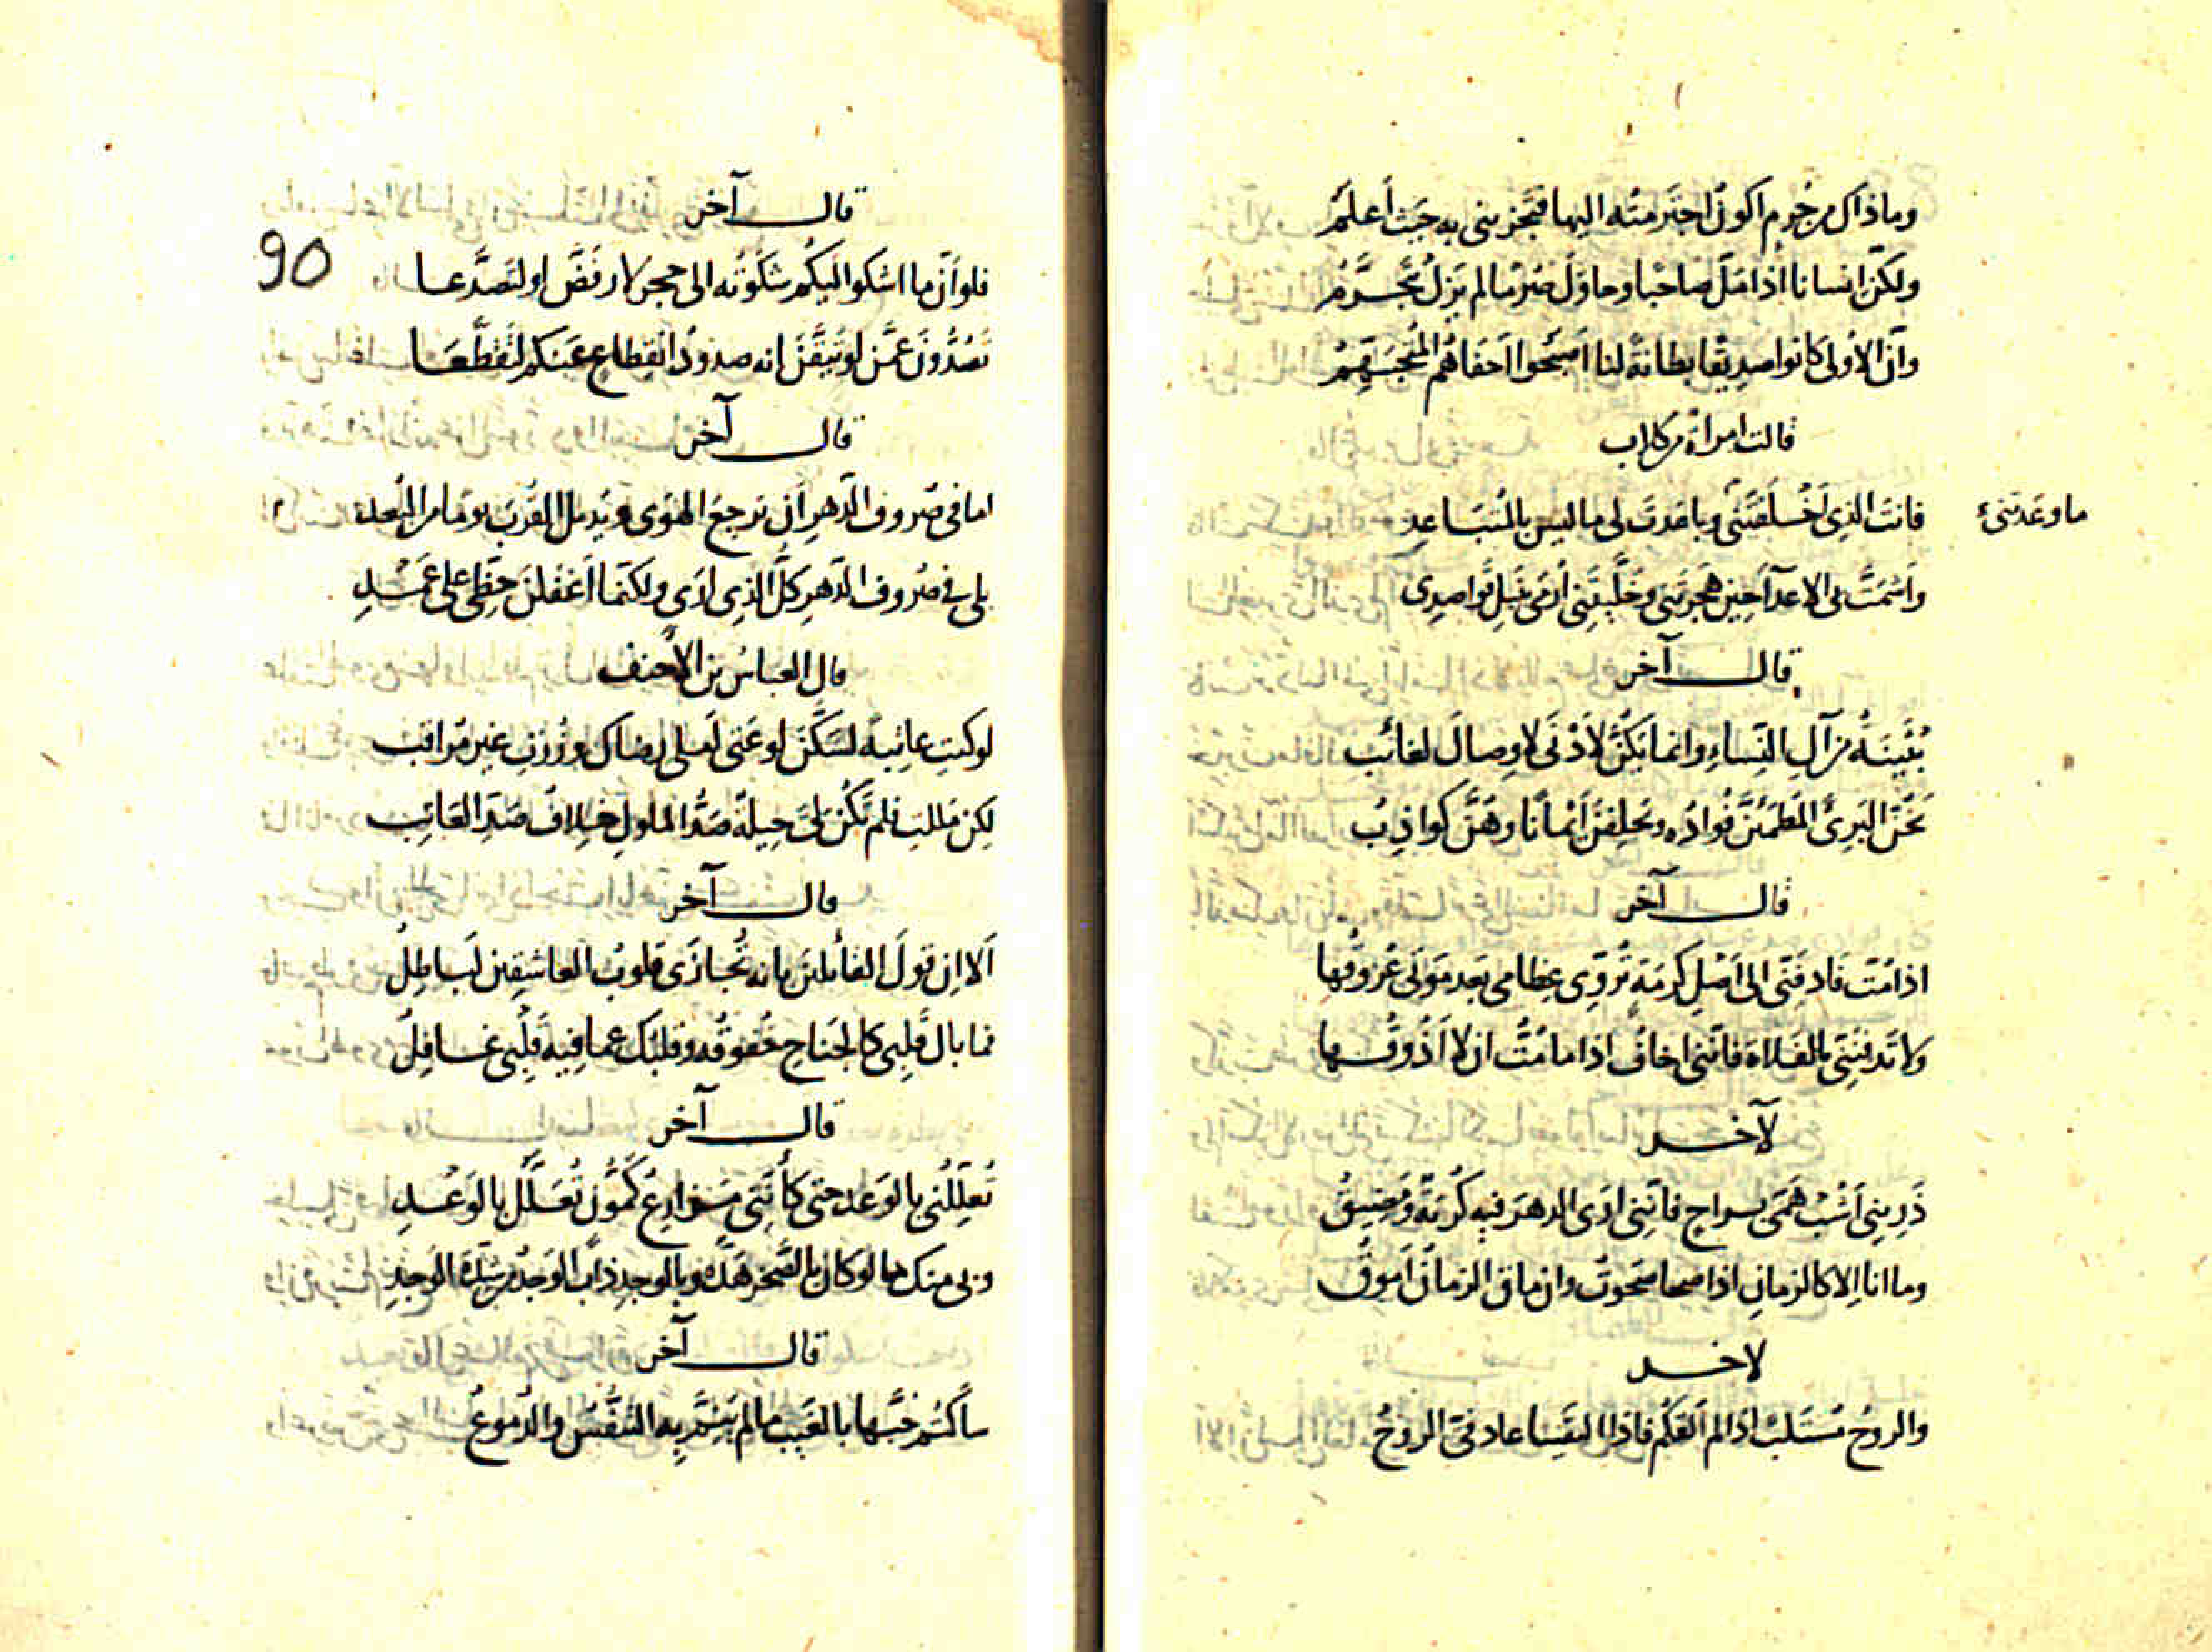 وماذاك من جرم اكون اجترمته اليها فتجزيني به حيث أعلم
ولكن انسانا اذا مل صاحبا وحاول صرما لم يزل يتجرم
وان الأولى كانوا صديقا بطانة لنا أصبحوا احفاهم المتجهم
قالت امراة من كلاب
فانت الذي اخلفتني وباعدت لي ما ليس بالمتباعد
ما وعدتني
واشمت بي الاعدآ حين هجرتني وخليتني أرمى بنبل قواصدي
قال آخر
بثينة من آل النساء وانما يكن لأدنى لا وصال لغائب
نخن البرئ المطمئن فواده ويحلفن أيمانا وهن كواذب
قال آخر
اذا مت فادفني الى اصل كرمة تروي عظامي بعد موتي عروقها
ولا تدفنني بالفلاة فانني اخاف اذا ما مت ان لا أذوقها
لآخر
ذريني أشب همي براح فانني ارى الدهر فيه كربة ومضيق
وما انا إلا كالزمان اذا صحا صحوت وان ماق الزمان أموق
لاخر
والروح مستلب اذا لم القكم فاذا التقينا عاد في الروح
قال آخر
90
فلو أن ما اشكو اليكم شكوته الى حجر لارفض او لتصدعا
تصدون عمن لو تيقن انه صدود انقطاع عنكم لتقطعا
قال آخر
اما في صروف الدهر أن ترجع الهوى ويديل القرب يوما من البعد
بلى في صروف الدهر كل الذي ارى ولكنما أغفلن حظي على عمد
قال العباس بن الأحنف
لو كنت عاتبة لسكن لوعتي أملي رضاك وزرت غير مراقب
لكن مللت فلم تكن لي حيلة صد الملول خلاف صد العاتب
قال آخر
ألا إن قول القائلين بانه تجازى قلوب العاشقين لباطل
فما بال قلبي كالجناح خفوقه وقلبك عما فيه قلبي غافل
قال آخر
تعللني بالوعد حتى كأنني مزارع كمون تعلل بالوعد
وبي منك ما لو كان بالصخر هده وبالوجد ذاب الوجد من شدة الوجد
قال آخر
سأكتم حبها بالغيب ما لم ينم به التنفس والدموع